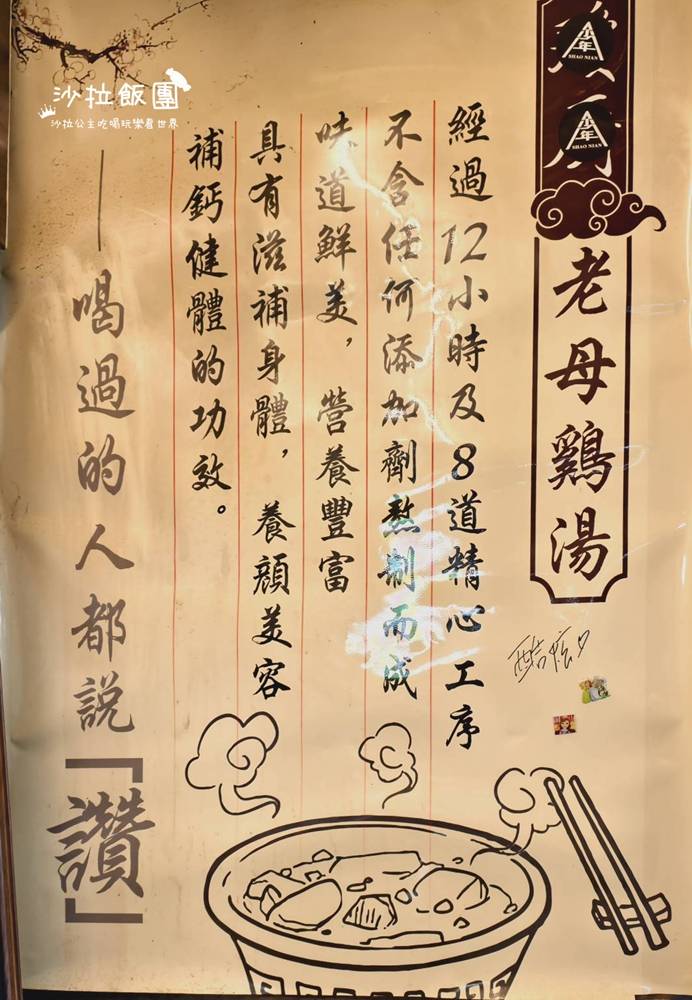 沙拉飯團
沙拉公主吃喝玩樂看世界
少年
SHAO NIAN
少年
SHAO NIAN
老母鷄湯
經過12小時及8道精心工序
不含任何添加劑熬制而成
味道鮮美，營養豐富
具有滋補身體，養顔美容
補鈣健體的功效。
——喝過的人都説「讚」